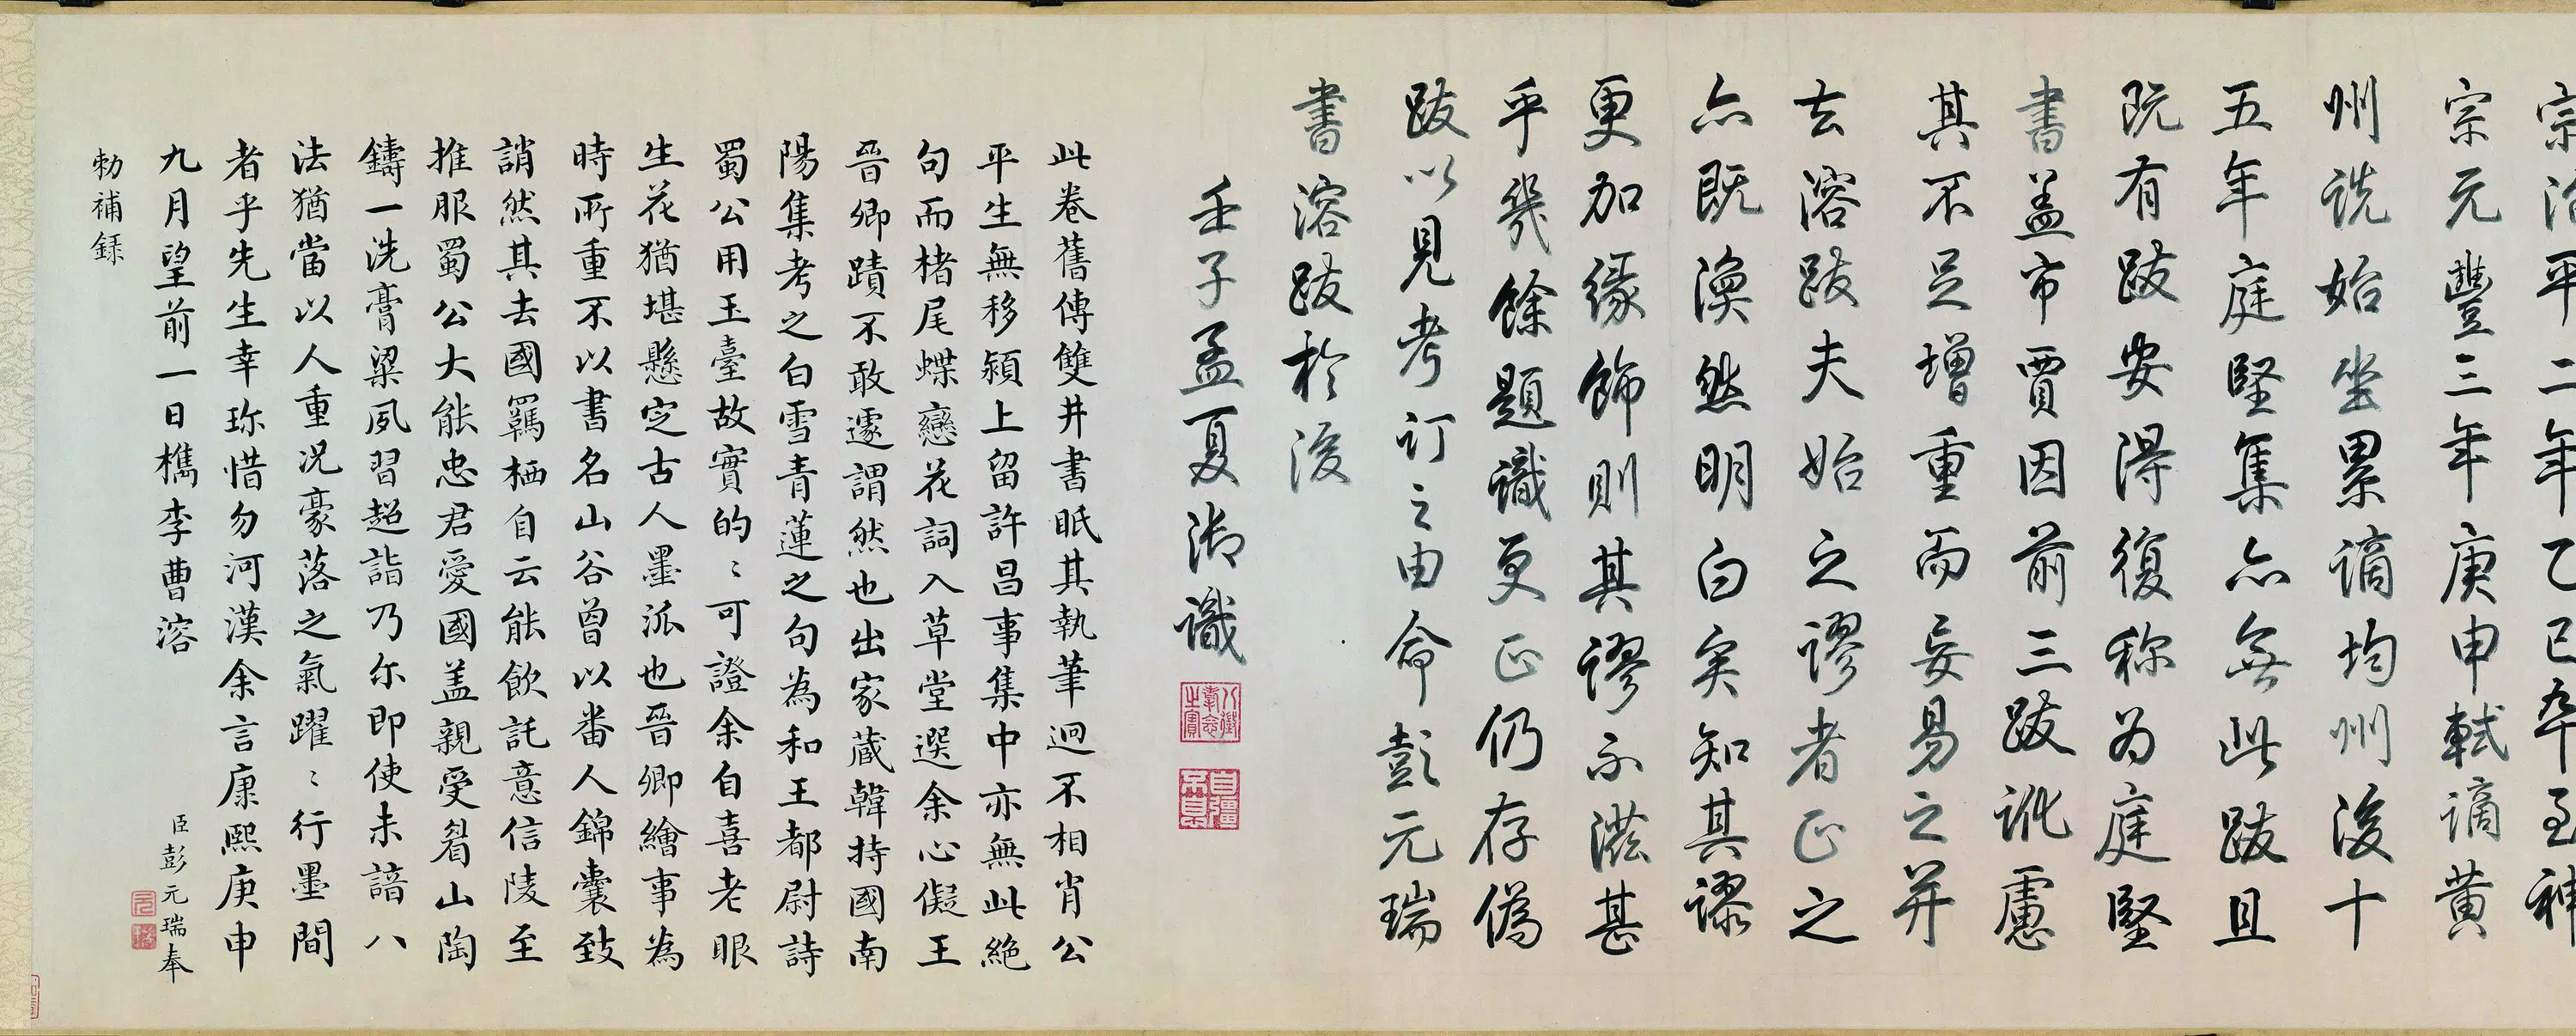 宗治平二年乙巳卒至神
宗元豐三年庚申軾謫黃
州詵始坐累謫均州後十
五年庭堅集亦無此跋且
既有跋安得復称為庭堅
書蓋市賈因前三跋訛慮
其不足增重而妄易之并
去溶跋夫始之謬者正之
亦既渙然明白矣知其謬
更加緣飾則其謬不滋甚
乎幾餘題識更正仍存偽
跋以見考訂之由命彭元瑞
書溶跋於後
壬子孟夏御識
八徵耄念之寶
自彊不息
此卷舊傳雙井書眂其執筆迥不相肖公
平生無移潁上留許昌事集中亦無此絕
句而楮尾蝶戀花詞入草堂選余心儗王
晉卿蹟不敢遽謂然也出家蔵韓持國南
陽集考之白雪青蓮之句為和王都尉詩
蜀公用玉臺故實的〻可證余自喜老眼
生花猶堪懸定古人墨派也晉卿繪事為
時所重不以書名山谷曾以番人錦囊致
誚然其去國羈栖自云能飲託意信陵至
推服蜀公大能忠君愛國蓋親受眉山陶
鑄一洗膏粱夙習超詣乃尓即使未諳八
法猶當以人重況豪落之氣躍〻行墨間
者乎先生幸珎惜勿河漢余言康熙庚申
九月望前一日檇李曹溶
臣彭元瑞奉
勅補錄
元
瑞